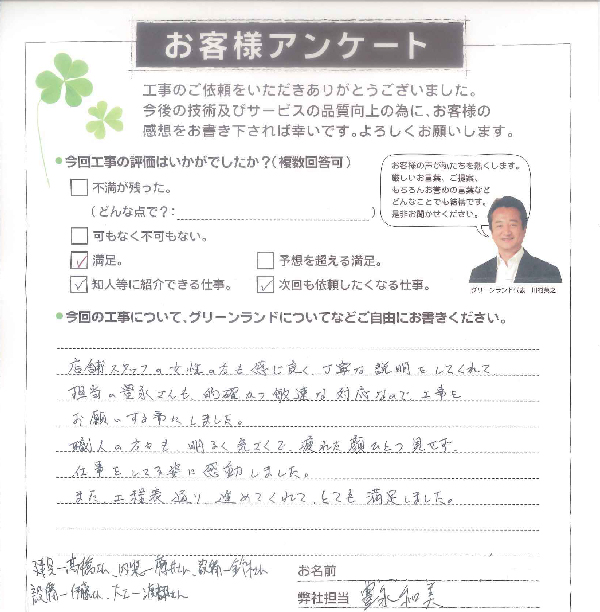 お客様アンケート
工事のご依頼をいただきありがとうございました。
今後の技術及びサービスの品質向上の為に、お客様の
感想をお書き下されば幸いです。よろしくお願いします。
今回工事の評価はいかがでしたか?(複数回答可)
不満が残った。
(どんな点で?: )
可もなく不可もない。
満足。
予想を超える満足。
知人等に紹介できる仕事。
次回も依頼したくなる仕事。
お客様の声が私たちを熱くします。
厳しいお言葉、ご提案、
もちろんお褒めの言葉など
どんなことでも結構です。
是非お聞かせください。
グリーンランド代表
今回の工事について、グリーンランドについてなどご自由にお書きください。
店舗スタッフの女性の方も感じ良く、丁寧な説明をしてくれて
担当の富永さんも、的確かつ敏速な対応なので工事を
お願いする事にしました。
職人の方々も、明るく気さくで、疲れた顔ひとつ見せず、
仕事をしてる姿に感動しました。
また、工程表通り進めてくれて、とても満足しました。
建具ー高橋さん、内装ー
設備ー伊藤さん、大工ー
お名前
弊社担当 富永和美